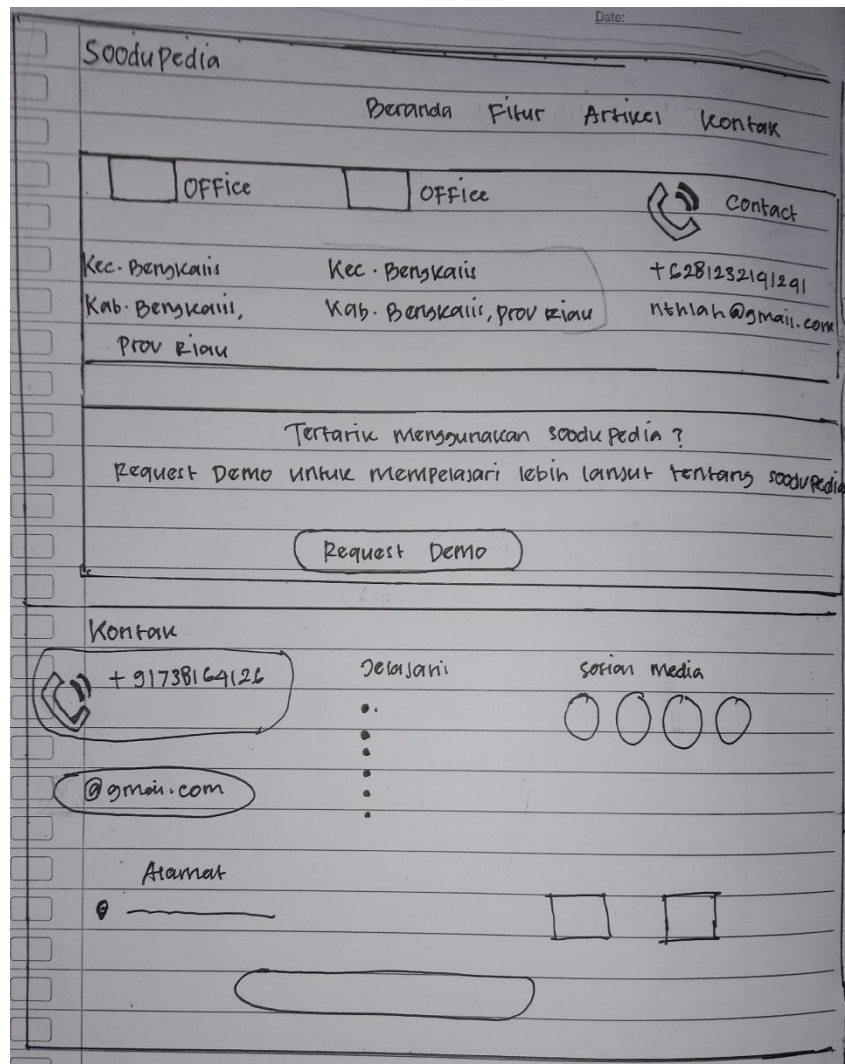 Date:
Soodupedia
Beranda Fitur Artikel Kontak
OFFice OFFice Contact
Kec. Bengkalis Kec. Bengkalis +6281232191291
Kab. Bengkalis, Kab. Bengkalis, prov Riau nthlah@gmail.com
Prov Riau
Tertarik menggunakan soodupedia ?
Request Demo untuk mempelajari lebih lanjut tentang soodupedia
Request Demo
Kontak
+ 91738164126 Jelajahi Sosian media
@gmail.com
Alamat